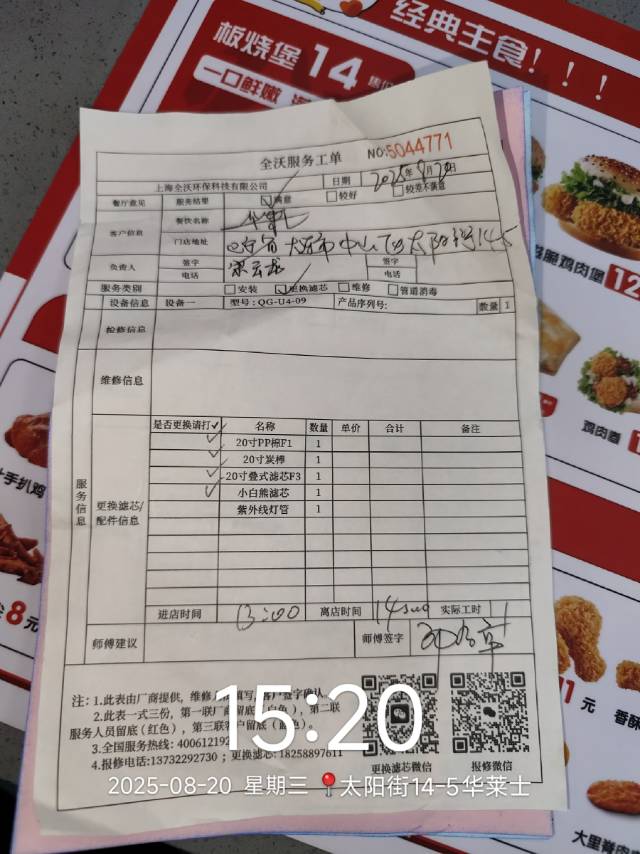 经典主食！！！
板烧堡 14
一口鲜嫩
全沃服务工单 NO:5044771
上海全沃环保科技有限公司 日期 2025年8月20
餐厅意见 服务结果 满意 较好 较差不满意
客户信息 餐饮名称
门店地址 中山 太阳街14-5
负责人 签字 签字
电话 电话
服务类别 安装 更换滤芯 维修 管道消毒
设备信息 设备一 型号：QG-U4-09 产品序列号： 数量 1
检修信息
维修信息
服务信息
更换滤芯/
配件信息
是否更换请打✓ 名称 数量 单价 合计 备注
✓ 20寸PP棉F1 1
✓ 20寸炭棒 1
✓ 20寸叠式滤芯F3 1
✓ 小白熊滤芯 1
紫外线灯管 1
进店时间 13:00 离店时间 实际工时
师傅建议 师傅签字
注：1.此表由厂商提供，维修 签字确认
2.此表一式三份，第一联厂商留底（白色），第二联
服务人员留底（红色），第三联客户留底（ 色）。
3.全国服务热线：40061219
4.报修电话:13732292730；更换滤芯:18258897611
更换滤芯微信 报修微信
15:20
2025-08-20 星期三 太阳街14-5华莱士
脆鸡肉堡
12
鸡肉卷
手扒鸡
8元
1元
香酥
大里脊肉